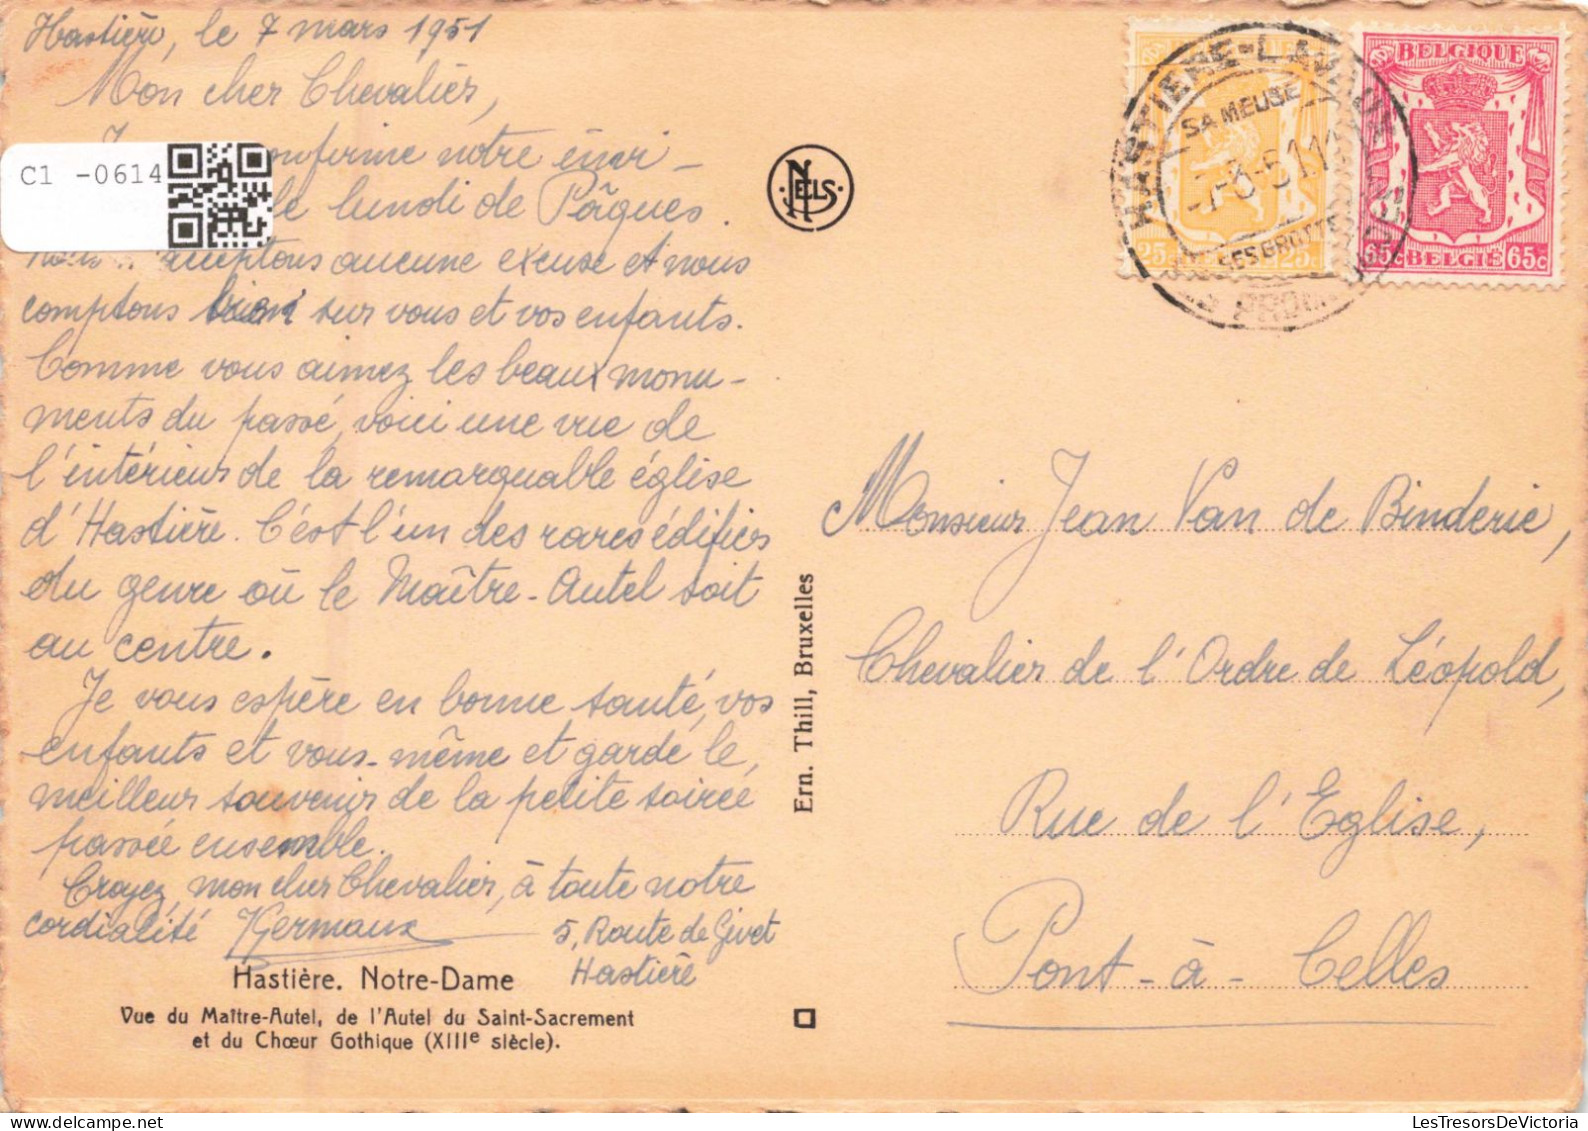 Hastière, le 7 mars 1951
Mon cher Chevalier,
confirme notre invi-
le lundi de Pâques.
acceptons aucune excuse et nous
comptons bien sur vous et vos enfants.
Comme vous aimez les beaux monu-
ments du passé, voici une vue de
l'intérieur de la remarquable église
d'Hastière. C'est l'un des rares édifices
du genre où le Maître-Autel soit
au centre.
Je vous espère en bonne santé, vos
enfants et vous-même et garde le
meilleur souvenir de la petite soirée
passée ensemble.
Croyez, mon cher Chevalier, à toute notre
cordialité
5, Route de Givet
Hastière
Hastière. Notre-Dame
Vue du Maître-Autel, de l'Autel du Saint-Sacrement
et du Chœur Gothique (XIIIe siècle).
C1 -0614
NELS
Ern. Thill, Bruxelles
HASTIERE-LAVAUX
SA MEUSE
-7-3-51 11
SES GROTTES
25c 25c
BELGIQUE
65c 65c
BELGIË
Monsieur Jean Van de Binderie,
Chevalier de l'Ordre de Léopold,
Rue de l'Eglise,
Pont-à-Celles
LesTresorsDeVictoria